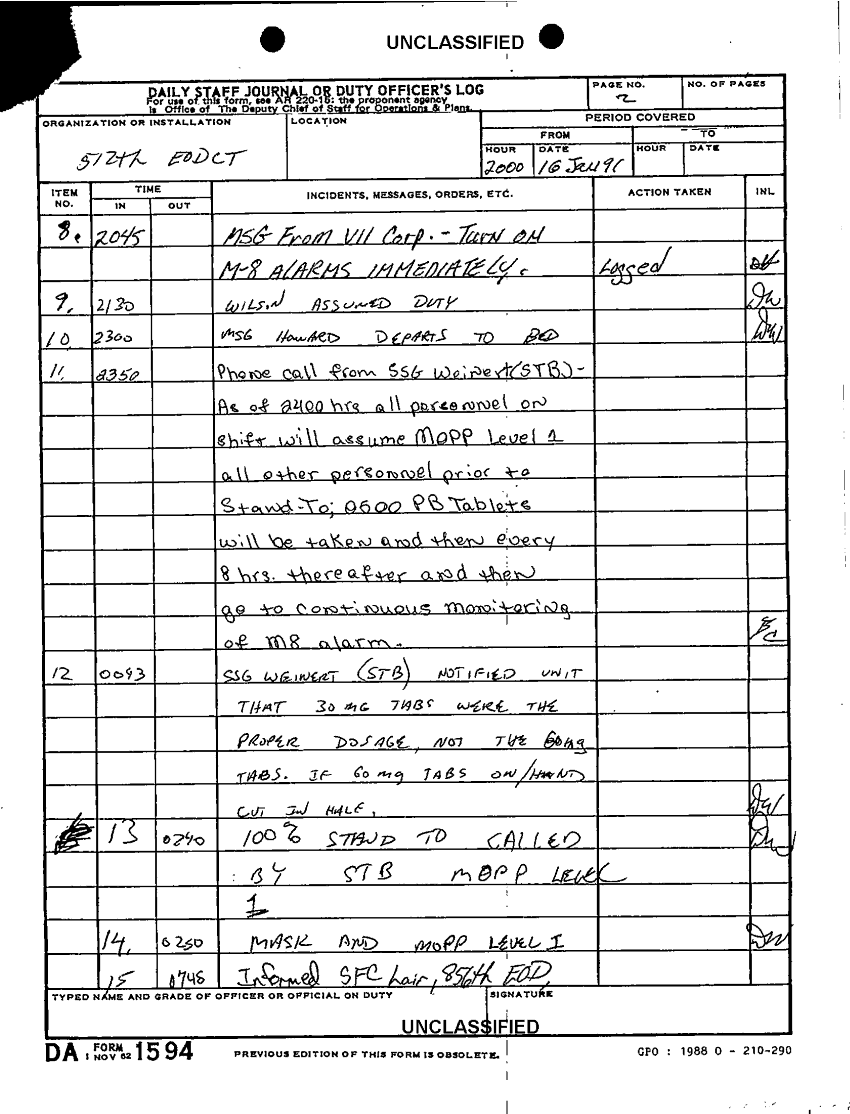 UNCLASSIFIED
DAILY STAFF JOURNAL OR DUTY OFFICER'S LOG
For use of this form, see AR 220-15; the proponent agency
is Office of The Deputy Chief of Staff for Operations & Plans.
PAGE NO.
2
NO. OF PAGES
ORGANIZATION OR INSTALLATION
512th EODCT
LOCATION
PERIOD COVERED
FROM
TO
HOUR
DATE
HOUR
DATE
2000
16 Jan 91
ITEM NO.
TIME
IN
OUT
INCIDENTS, MESSAGES, ORDERS, ETC.
ACTION TAKEN
INL
8. 2045 MSG From VII Corp. - Turn on
M-8 ALARMS IMMEDIATELY. Logged
9. 2130 WILSON ASSUMED DUTY DW
10. 2300 MSG HOWARD DEPARTS TO BED DW
11. 2350 Phone call from SSG Weinert (STB) -
As of 2400 hrs all personnel on
shift will assume MOPP Level 1
all other personnel prior to
Stand-To; 0500 PB Tablets
will be taken and then every
8 hrs. thereafter and then
go to continuous monitoring
of M8 alarm.
12 0043 SSG WEINERT (STB) NOTIFIED UNIT
THAT 30 mg TABS WERE THE
PROPER DOSAGE, NOT THE 60mg
TABS. IF 60 mg TABS ON/HAND
CUT IN HALF. DW
13 0240 100% STAND TO CALLED DW
BY STB MOPP LEVEL
1
14. 0250 MASK AND MOPP LEVEL I DW
15 0748 Informed SFC Lair, 856th EOD
TYPED NAME AND GRADE OF OFFICER OR OFFICIAL ON DUTY
SIGNATURE
UNCLASSIFIED
DA FORM 1 NOV 62 1594
PREVIOUS EDITION OF THIS FORM IS OBSOLETE.
GPO : 1988 O - 210-290